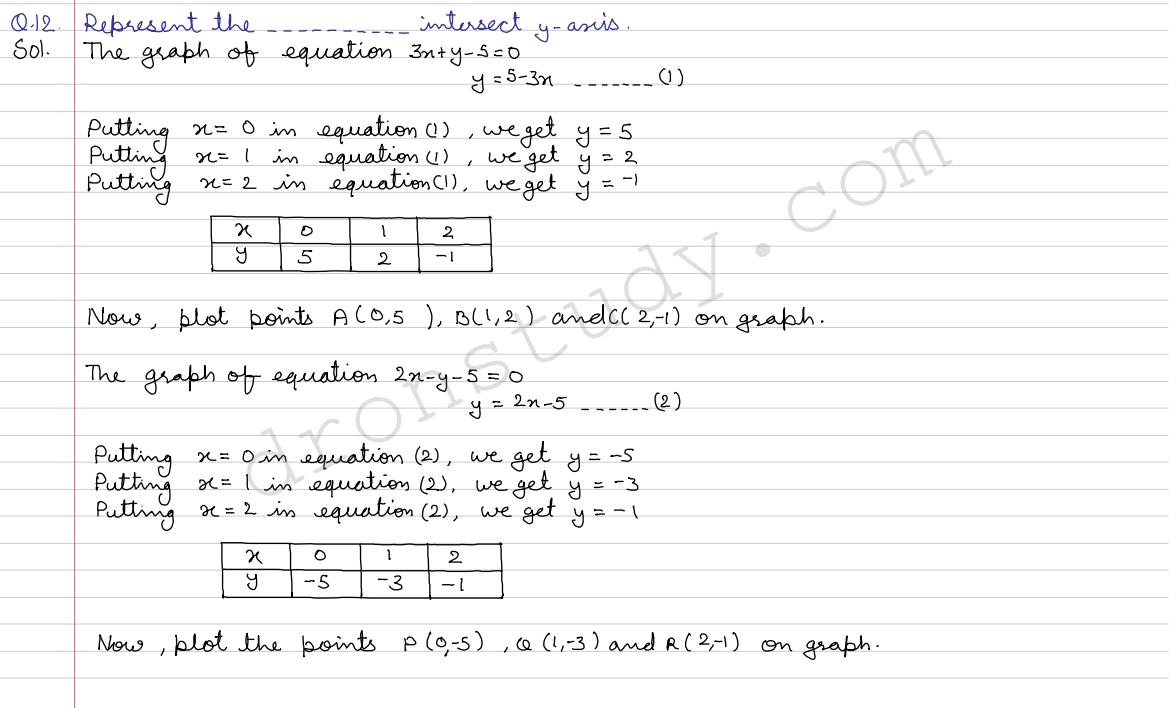 Q.12. Represent the ---------- intersect y-axis.
Sol. The graph of equation 3x+y-5=0
y=5-3x -------(1)
Putting x= 0 in equation (1), we get y = 5
Putting x= 1 in equation (1), we get y = 2
Putting x= 2 in equation (1), we get y = -1
x 0 1 2
y 5 2 -1
Now, plot points A(0,5 ), B(1,2) and C( 2,-1) on graph.
The graph of equation 2x-y-5=0
y = 2x-5 ------(2)
Putting x= 0 in equation (2), we get y = -5
Putting x= 1 in equation (2), we get y = -3
Putting x= 2 in equation (2), we get y = -1
x 0 1 2
y -5 -3 -1
Now, plot the points P(0,-5), Q(1,-3) and R(2,-1) on graph.
dronstudy.com